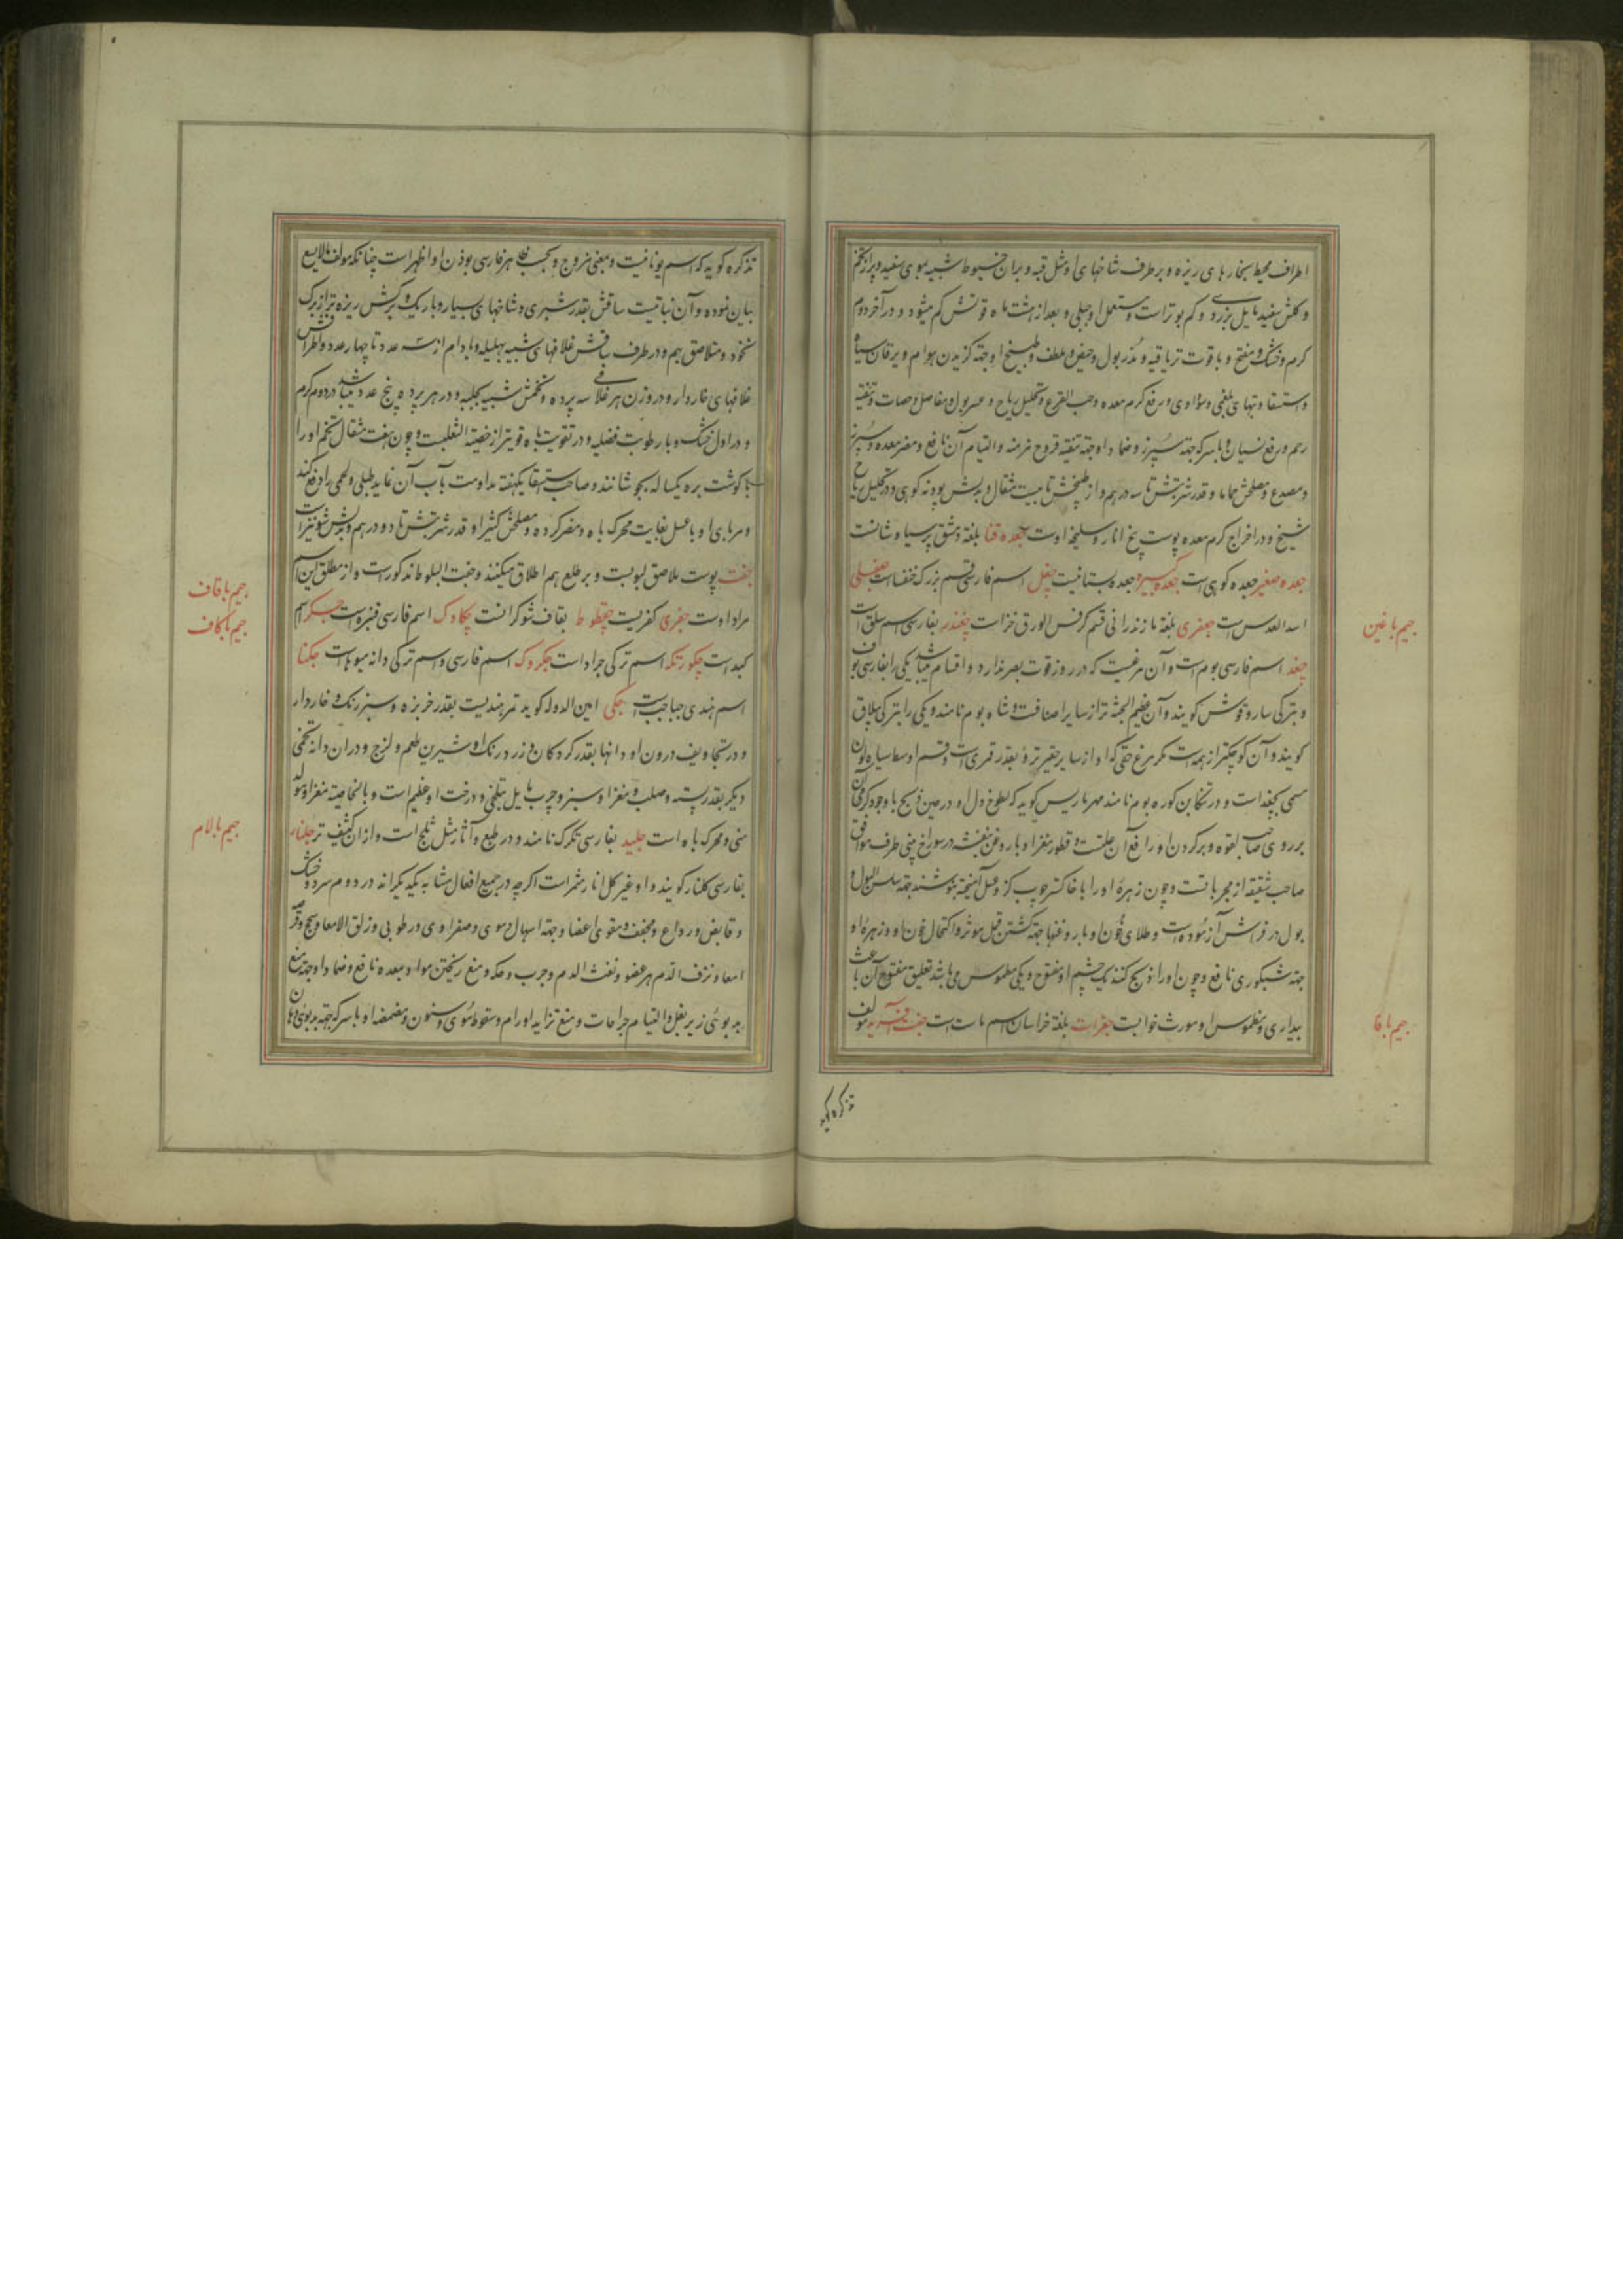 اطراف محیط بخارهای ریزه و بر طرف شاخهای او مثل قبه و بران خیوط شبیه بموی سفید و پر از تخم
و کلش سفید مایل بزردی و کم بوتر است و مستعمل او جبلی و بعد از هشت ماه قوتش کم میشود و در آخر دوم
گرم و خشک و مفتح و با قوت تریاقیه و مدر بول و حیض و ملطف و طبیخ او جهة گزیدن هوام و یرقان سیاه
و استسقا و تبهای بلغمی و سوداوی و رفع کرم معده و حب القرع و تحلیل ریاح و عسر بول و مفاصل و حصات و تنقیه
رحم و رفع نسیان و با سرکه جهة سپرز و ضماد او جهة تنقیه قروح مزمنه و التیام آن نافع و مضر معده و سپرز
و مصدع و مصلحش حماما و قدر شربتش تا سه درهم و از طبیخش تا بیست مثقال و بدلش پودنه کوهی و در تحلیل ریاح
شیح و در اخراج کرم معده پوست بیخ انار و سلیخه اوست جعده قنا بلغة دمشق پرسیاوشانست
جعده صغیر جعده کوهی است جعده کبیر جعده بستانیست جعل اسم فارسی قسم بزرک خنفسا است جعفیلی
اسد العدس است جعفری بلغة مازندرانی قسم کرفس الورق خزا است چغندر بفارسی اسم سلق است
چغد اسم فارسی بوم است و آن مرغیست که در روز قوت بصر ندارد و اقسام میباشد یکی را بفارسی بوف
و بترکی ساروقوش گویند و آن عظیم الجثه تر از سایر اصنافست و شاه بوم نامند و یکی را بترکی یپلاق
گویند و آن کوچکتر از همه است مگر مرغ حق که او از سایر حقیرتر و بقدر قمری است و قسم اوسط سیاه لون
مسمی بچغد است و در تنکابن کوره بوم نامند مهراریس گوید که لطوخ دل او در حین ذبح با وجود گرمی آن
بر روی صاحب لقوه و برگردن او رافع آن علتست و قطور مغز او با روغن بنفشه در سوراخ بینی طرف موافق
صاحب شقیقه از مجرباتست و چون زهرهٔ او را با خاکستر چوب گز و عسل آمیخته بنوشند جهة سلس البول و
بول در فراش آزموده است و طلای خون او با روغنها جهة کشتن قمل موثر و اکتحال خون او و زهرهٔ او
جهة شبکوری نافع و چون او را ذبح کنند یک چشم او مفتوح و یکی مطموس می باشد تعلیق مفتوح آن باعث
بیداری و مطموس او مورث خوابست جغرات بلغة خراسان اسم ماست است جفت آفرید مولف
تذکره گوید
جیم با غین
جیم با فا
تذکره گوید که اسم یونانیست و بمعنی مزدوج و بحسب ظاهر فارسی بودن او اظهر است چنانکه مولف مالایسع
بیان نموده و آن نباتیست ساقش بقدر شبری و شاخهای بسیار و باریک و برگش ریزه تر از برگ
نخود و متلاصق بهم و در طرف ساقش غلافهای شبیه بهلیله و بادام از سه عدد تا چهار عدد و اطراف
غلافهای خاردار و در درون هر غلافی سه پرده و تخمش شبیه بحلبه و در هر پرده پنج عدد میباشد در دوم گرم
و در اول خشک و با رطوبت فضلیه و در تقویت باه قویتر از خصیة الثعلبست و چون هفت مثقال تخم او را
با گوشت بره یکساله بجوشانند و صاحب استسقا یکهفته مداومت بآب آن نماید طبلی و لحمی را دفع کند
و مربای او با عسل بغایت محرک باه و مضر گرده و مصلحش کثیرا و قدر شربتش تا دو درهم و بدلش شونیز است
جفت پوست ملاصق لبوبست و بر طلع هم اطلاق میکنند و جفت البلوط مذکور است و از مطلق این اسم
مراد اوست جفری کفریست چقطوط بقاف شوکرانست چکاوک اسم فارسی قنبره است جگر اسم
کبد است چکورتکه اسم ترکی جراد است جکردک اسم فارسی و اسم ترکی دانه میوهاست جکنا
اسم هندی حباحب است جکی امین الدوله گوید ثمر هندیست بقدر خربزه و سبزرنک و خاردار
و در تجاویف درون او دانها بقدر گردکان و زرد رنک و شیرین طعم و لزج و در ان دانه تخمی
دیگر بقدر پسته و صلب و مغز او سبز و چرب مایل بتلخی و درخت او عظیم است و بالخاصیة مغز او مولد
منی و محرک باه است جلید بفارسی تگرک نامند و در طبع و آثار مثل ثلج است و از ان کثیف تر جلنار
بفارسی گلنار گویند و او غیر گل انار مثمر است اگر چه در جمیع افعال مشابه یکدیگراند در دوم سرد و خشک
و قابض و رداع و مجفف و مقوی اعضا و جهة اسهال دموی و صفراوی و رطوبی و زلق الامعا و سحج و قرحه
امعا و نزف الدم هر عضو و نفث الدم و جرب و حکه و منع ریختن مواد بمعده نافع و ضماد او جهة منع
بدبوئی زیر بغل و التیام جراحات و منع تزاید اورام و سقوط موی و سنون و مضمضه او با سرکه جهة بدبوئی دهان
جیم با قاف
جیم با کاف
جیم با لام